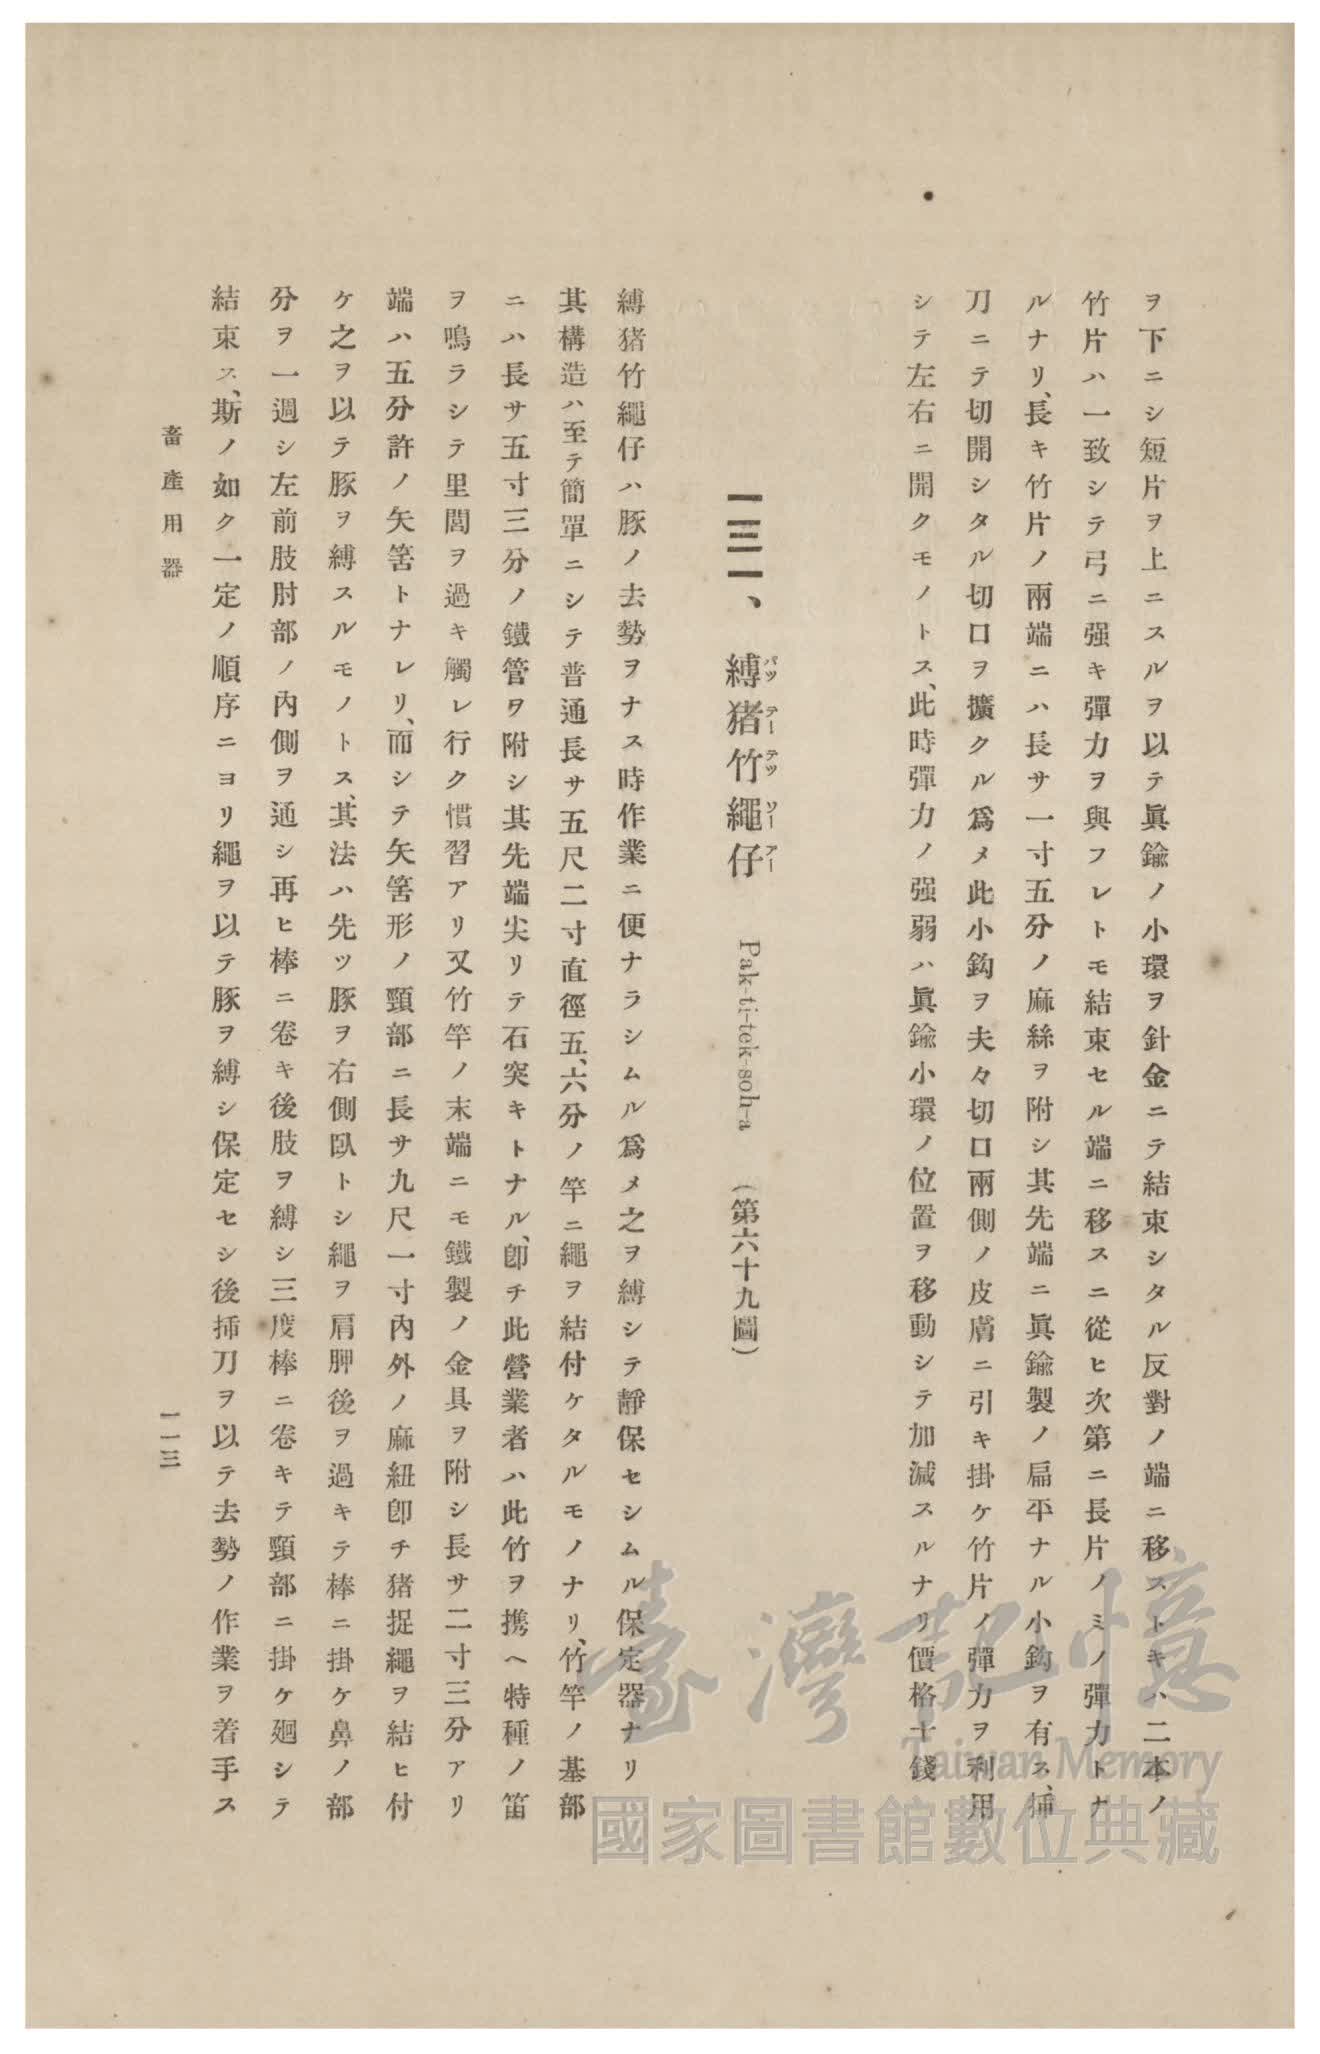 ヲ下ニシ短片ヲ上ニスルヲ以テ眞鍮ノ小環ヲ針金ニテ結束シタル反對ノ端ニ移ストキハ二本ノ
竹片ハ一致シテ弓ニ强キ彈力ヲ與フレトモ結束セル端ニ移スニ從ヒ次第ニ長片ノミノ彈力トナ
ルナリ、長キ竹片ノ兩端ニハ長サ一寸五分ノ麻絲ヲ附シ其先端ニ眞鍮製ノ扁平ナル小鈎ヲ有ス、揷
刀ニテ切開シタル切口ヲ擴クル爲メ此小鈎ヲ夫々切口兩側ノ皮膚ニ引キ掛ケ竹片ノ彈力ヲ利用
シテ左右ニ開クモノトス、此時彈力ノ强弱ハ眞鍮小環ノ位置ヲ移動シテ加減スルナリ價格十錢
一三一、縛猪竹繩仔 Pak-ti-tek-soh-a (第六十九圖)
パツテーテツソーアー
縛猪竹繩仔ハ豚ノ去勢ヲナス時作業ニ便ナラシムル爲メ之ヲ縛シテ靜保セシムル保定器ナリ
其構造ハ至テ簡單ニシテ普通長サ五尺二寸直徑五、六分ノ竿ニ繩ヲ結付ケタルモノナリ、竹竿ノ基部
ニハ長サ五寸三分ノ鐵管ヲ附シ其先端尖リテ石突キトナル、卽チ此營業者ハ此竹ヲ携ヘ特種ノ笛
ヲ鳴ラシテ里閭ヲ過キ觸レ行ク慣習アリ又竹竿ノ末端ニモ鐵製ノ金具ヲ附シ長サ二寸三分アリ
端ハ五分許ノ矢筈トナレリ、而シテ矢筈形ノ頸部ニ長サ九尺一寸內外ノ麻紐卽チ猪捉繩ヲ結ヒ付
ケ之ヲ以テ豚ヲ縛スルモノトス、其法ハ先ツ豚ヲ右側臥トシ繩ヲ肩胛後ヲ過キテ棒ニ掛ケ鼻ノ部
分ヲ一週シ左前肢肘部ノ內側ヲ通シ再ヒ棒ニ卷キ後肢ヲ縛シ三度棒ニ卷キテ頸部ニ掛ケ廻シテ
結束ス、斯ノ如ク一定ノ順序ニヨリ繩ヲ以テ豚ヲ縛シ保定セシ後揷刀ヲ以テ去勢ノ作業ヲ着手ス
畜產用器
一一三
臺灣記憶
Taiwan Memory
國家圖書館數位典藏